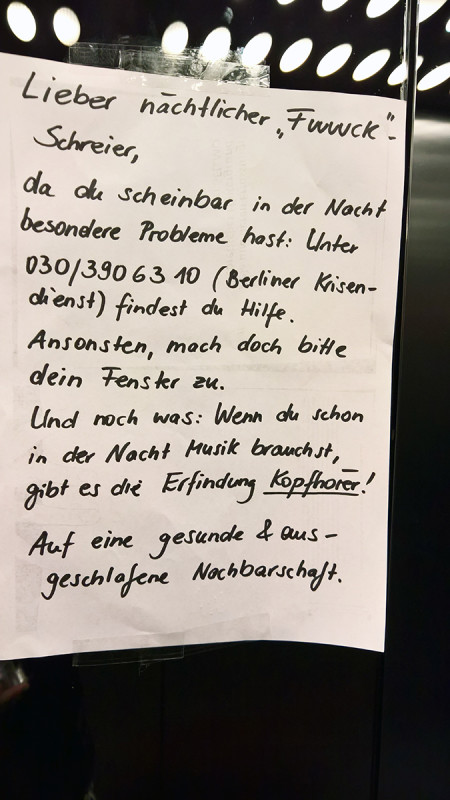 Lieber nächtlicher „Fwwwck"-
Schreier,
da du scheinbar in der Nacht
besondere Probleme hast: Unter
030/390 63 10 (Berliner Krisen-
dienst) findest du Hilfe.
Ansonsten, mach doch bitte
dein Fenster zu.
Und noch was: Wenn du schon
in der Nacht Musik brauchst,
gibt es die Erfindung Kopfhörer!
Auf eine gesunde & aus-
geschlafene Nachbarschaft.